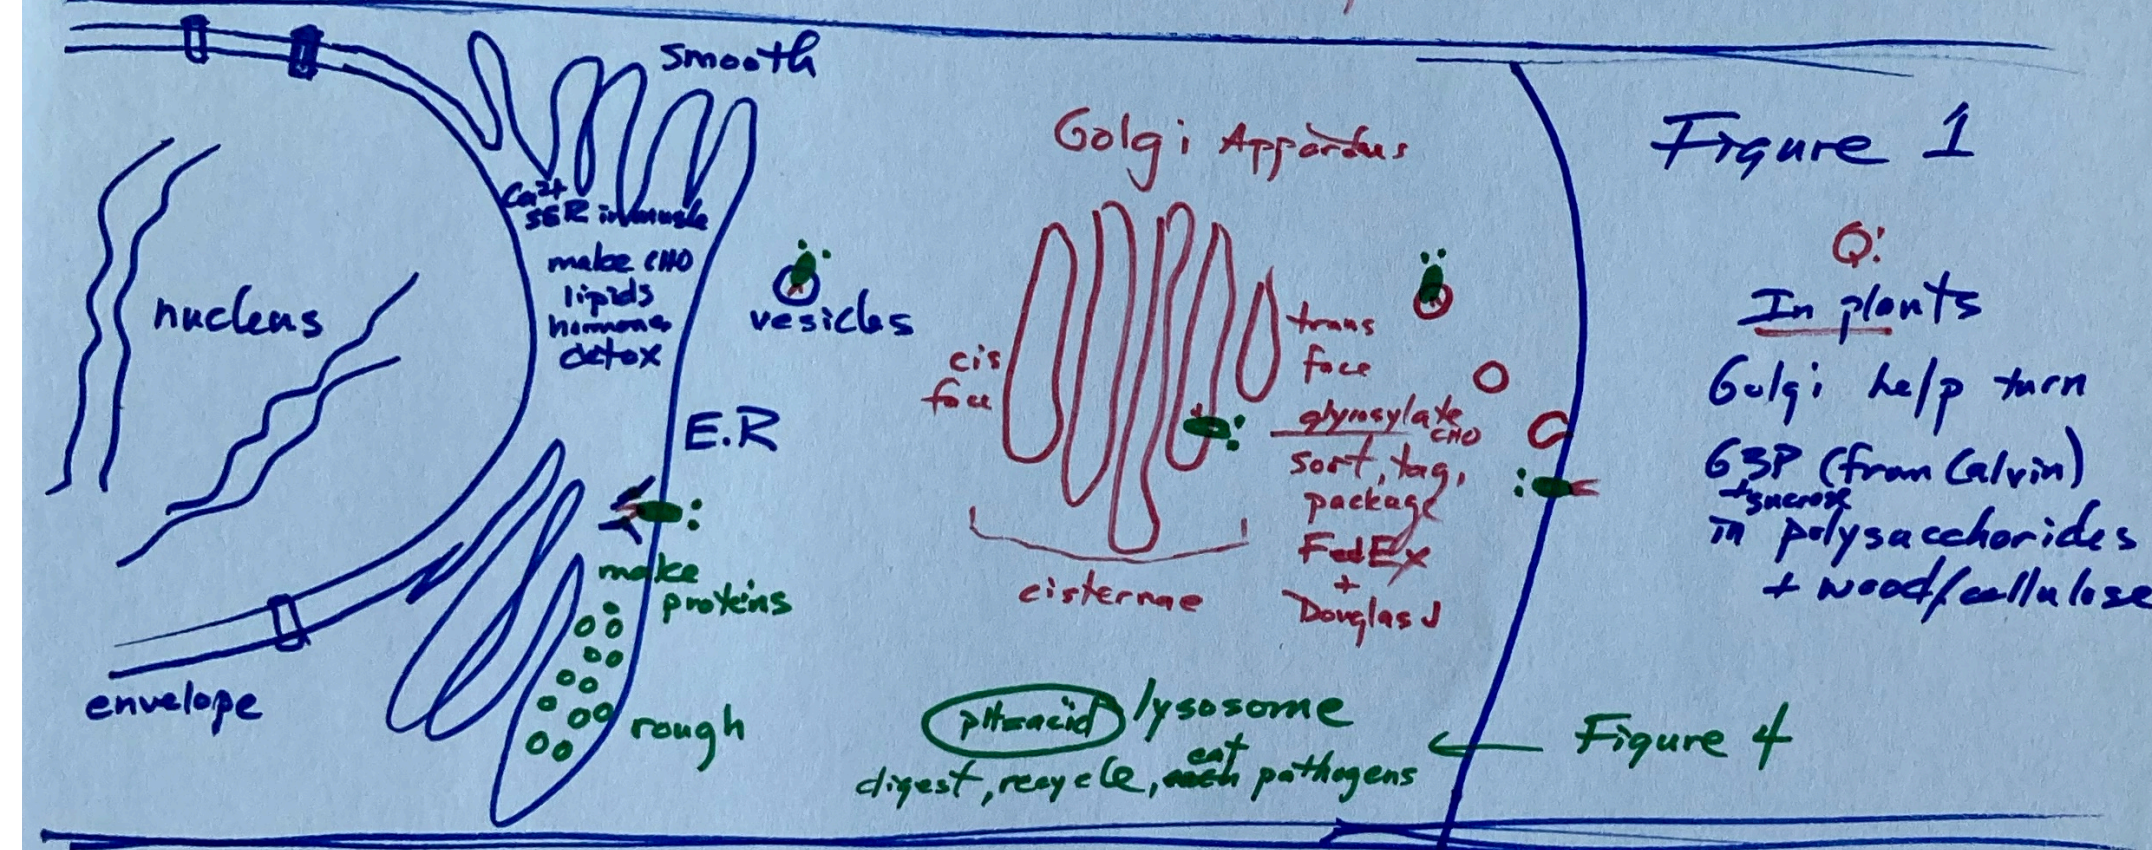 smooth
Ca2+
SER in muscle
make CHO
lipids
hormones
detox
nucleus
vesicles
E.R
make
proteins
rough
envelope
Golgi Apparatus
cis
face
trans
face
glycosylate
CHO
sort, tag,
package
FedEx
+
Douglas J
cisternae
pH=acid lysosome
digest, recycle, eat pathogens
Figure 4
Figure 1
Q:
In plants
Golgi help turn
G3P (from Calvin)
+ sucrose
in polysaccharides
+ wood/cellulose